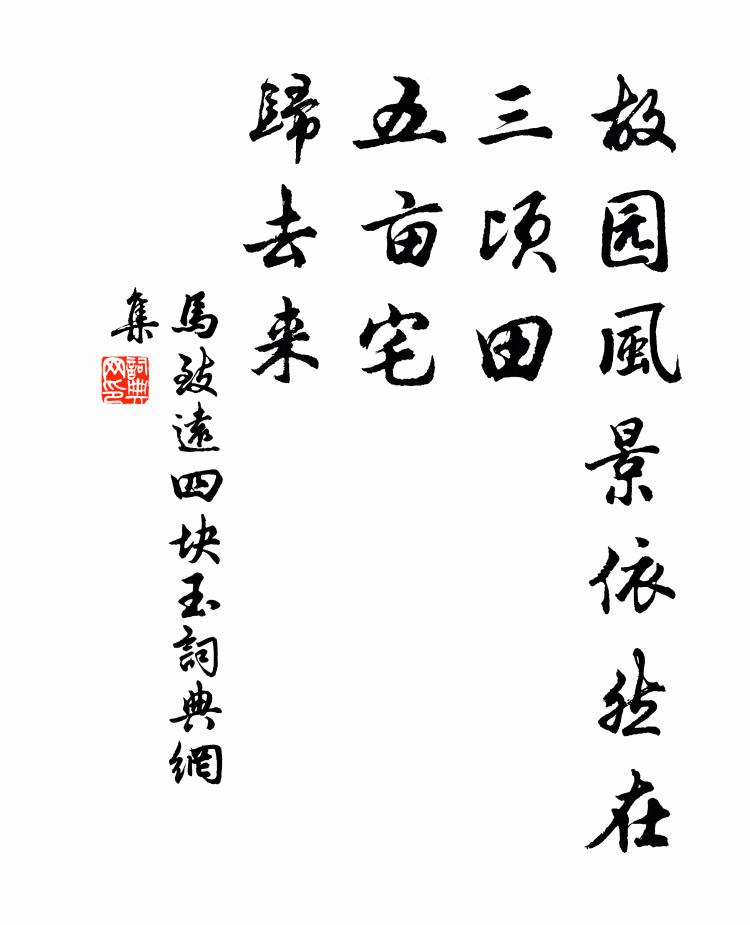 故园風景依然在
三顷田
五亩宅
歸去来
馬致遠四块玉詞典網
集
詞典网印